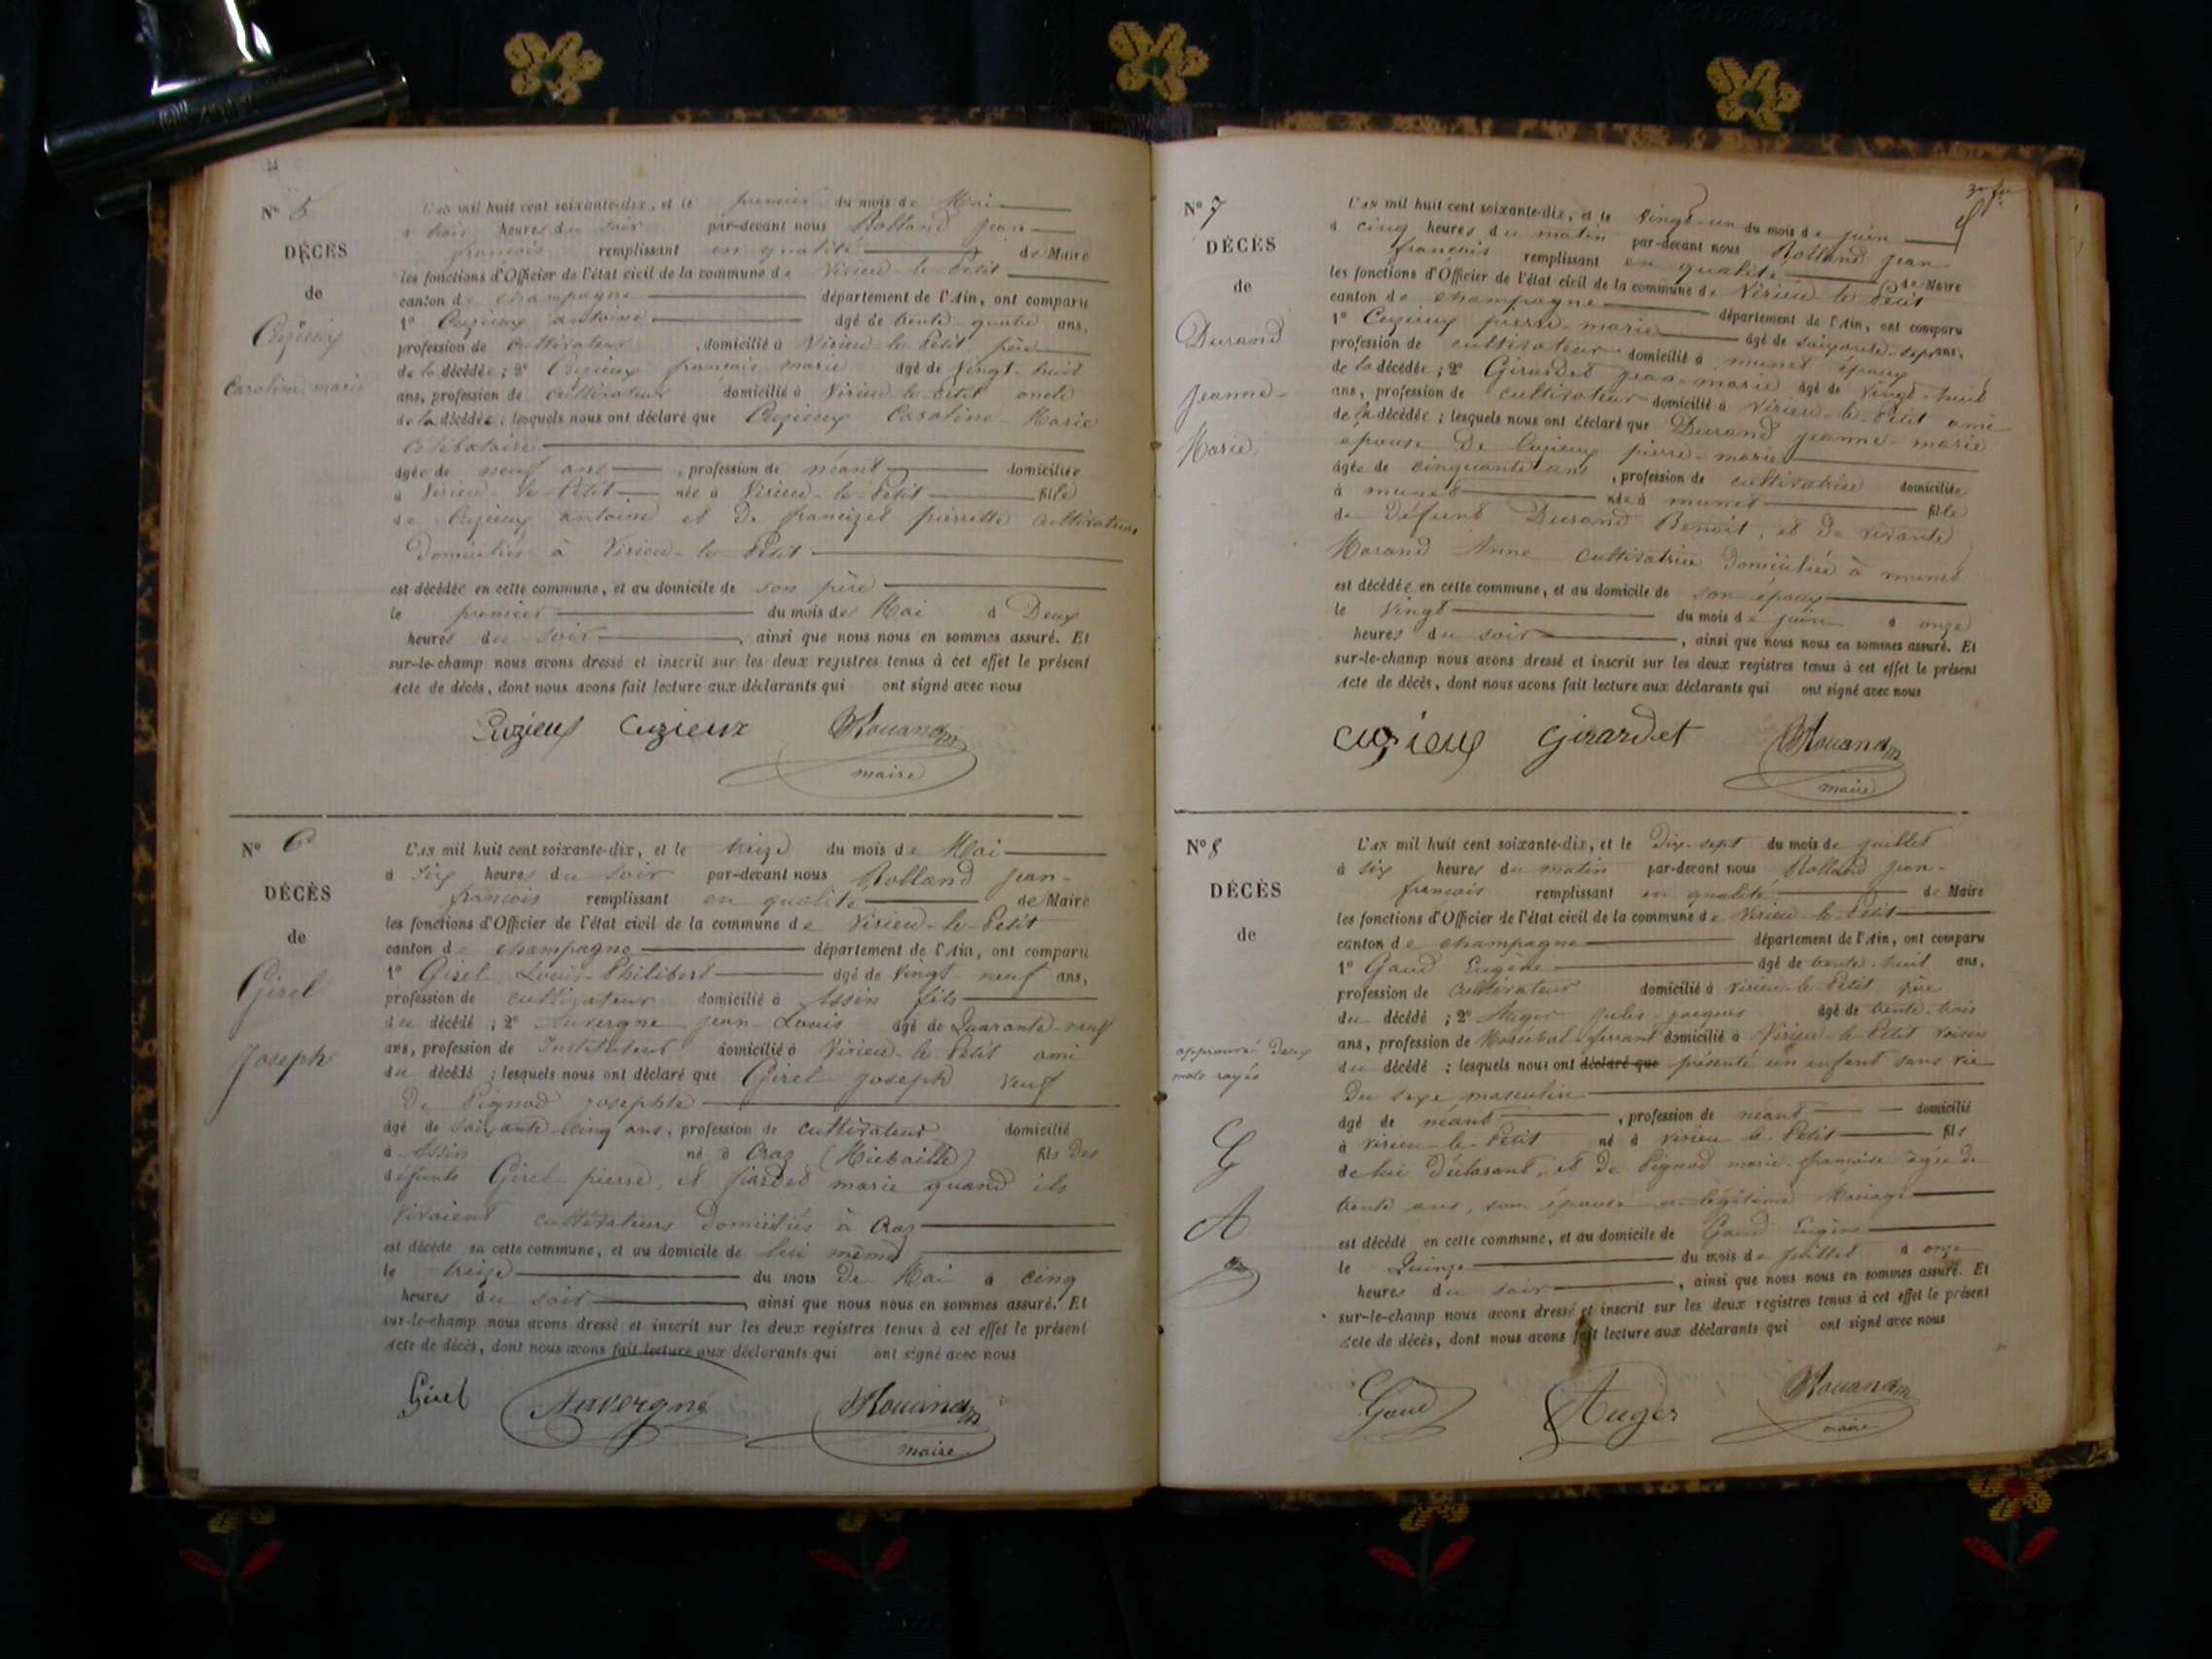 N° 5
DÉCÈS
de
Cuzieux
Caroline marie
L'AN mil huit cent soixante-dix, et le premier du mois de Mai
à trois heures du soir par-devant nous Rolland jean
françois remplissant en qualité de Maire
les fonctions d'Officier de l'état civil de la commune de Virieu-le-Petit
canton de champagne département de l'Ain, ont comparu
1° Cuzieux antoine âgé de trente-quatre ans,
profession de cultivateur, domicilié à Virieu-le-Petit père
de la décédée ; 2° Cuzieux françois marie âgé de vingt-huit
ans, profession de cultivateur domicilié à Virieu-le-Petit oncle
de la décédée ; lesquels nous ont déclaré que Cuzieux Caroline-Marie
célibataire
âgée de neuf ans, profession de néant domiciliée
à Virieu-le-Petit née à Virieu-le-Petit fille
de Cuzieux antoine et de francizet pierrette cultivateurs
Domiciliés à Virieu-le-Petit
est décédée en cette commune, et au domicile de son père
le premier du mois de Mai à Deux
heures du soir, ainsi que nous nous en sommes assuré. Et
sur-le-champ nous avons dressé et inscrit sur les deux registres tenus à cet effet le présent
Acte de décès, dont nous avons fait lecture aux déclarants qui ont signé avec nous
Cuzieux Cuzieux
maire
N° 6
DÉCÈS
de
Girel
Joseph
L'AN mil huit cent soixante-dix, et le treize du mois de Mai
à Six heures du soir par-devant nous Rolland jean-
françois remplissant en qualité de Maire
les fonctions d'Officier de l'état civil de la commune de Virieu-le-Petit
canton de champagne département de l'Ain, ont comparu
1° Girel Louis-Philibert âgé de vingt-neuf ans,
profession de cultivateur domicilié à Assin fils
du décédé ; 2° Auvergne jean-Louis âgé de Quarante-neuf
ans, profession de Instituteur domicilié à Virieu-le-Petit ami
du décédé ; lesquels nous ont déclaré que Girel joseph veuf
de Pignod josephte
âgé de soixante-cinq ans, profession de cultivateur domicilié
à Assin né à Craz (Michaille) fils des
défunts Girel pierre, et jardet marie quand ils
vivaient cultivateurs domiciliés à Craz
est décédé en cette commune, et au domicile de lui même
le treize du mois de Mai à cinq
heures du soir, ainsi que nous nous en sommes assuré. Et
sur-le-champ nous avons dressé et inscrit sur les deux registres tenus à cet effet le présent
Acte de décès, dont nous avons fait lecture aux déclarants qui ont signé avec nous
Girel Auvergne
maire
N° 7
DÉCÈS
de
Durand
Jeanne-
Marie
L'AN mil huit cent soixante-dix, et le vingt-un du mois de juin
à cinq heures du matin par-devant nous Rolland jean-
françois remplissant en qualité de Maire
les fonctions d'Officier de l'état civil de la commune de Virieu le Petit
canton de champagne département de l'Ain, ont comparu
1° Cuzieux pierre-marie âgé de soixante-sept ans,
profession de cultivateur domicilié à munet époux
de la décédée ; 2° Girardet jean-marie âgé de vingt-huit
ans, profession de cultivateur domicilié à Virieu-le-Petit ami
de la décédée ; lesquels nous ont déclaré que Durand jeanne-marie
épouse de Cuzieux pierre-marie
âgée de cinquante ans, profession de cultivatrice domiciliée
à munet née à munet fille
de défunt Durand Benoit, et de vivante
Morand Anne cultivatrice domiciliée à munet
est décédée en cette commune, et au domicile de son époux
le vingt du mois de juin à onze
heures du soir, ainsi que nous nous en sommes assuré. Et
sur-le-champ nous avons dressé et inscrit sur les deux registres tenus à cet effet le présent
Acte de décès, dont nous avons fait lecture aux déclarants qui ont signé avec nous
Cuzieux Girardet
maire
N° 8
DÉCÈS
de
approuvé deux
mots rayés
G
A
L'AN mil huit cent soixante-dix, et le Dix-sept du mois de juillet
à six heures du matin par-devant nous Rolland jean-
françois remplissant en qualité de Maire
les fonctions d'Officier de l'état civil de la commune de Virieu-le-Petit
canton de champagne département de l'Ain, ont comparu
1° Gaud Eugène âgé de trente-huit ans,
profession de cultivateur domicilié à Virieu-le-Petit père
du décédé ; 2° Auger jules-jacques âgé de trente-trois
ans, profession de Maréchal-ferrant domicilié à Virieu-le-Petit voisin
du décédé ; lesquels nous ont déclaré que présenté un enfant sans vie
Du sexe masculin
âgé de néant, profession de néant domicilié
à Virieu-le-Petit né à Virieu le-Petit fils
de lui déclarant, et de Pignod marie-françoise âgée de
trente ans, son épouse en légitime Mariage
est décédé en cette commune, et au domicile de Gaud Eugène
le Quinze du mois de juillet à onze
heures du soir, ainsi que nous nous en sommes assuré. Et
sur-le-champ nous avons dressé et inscrit sur les deux registres tenus à cet effet le présent
Acte de décès, dont nous avons fait lecture aux déclarants qui ont signé avec nous
Gaud Auger
maire